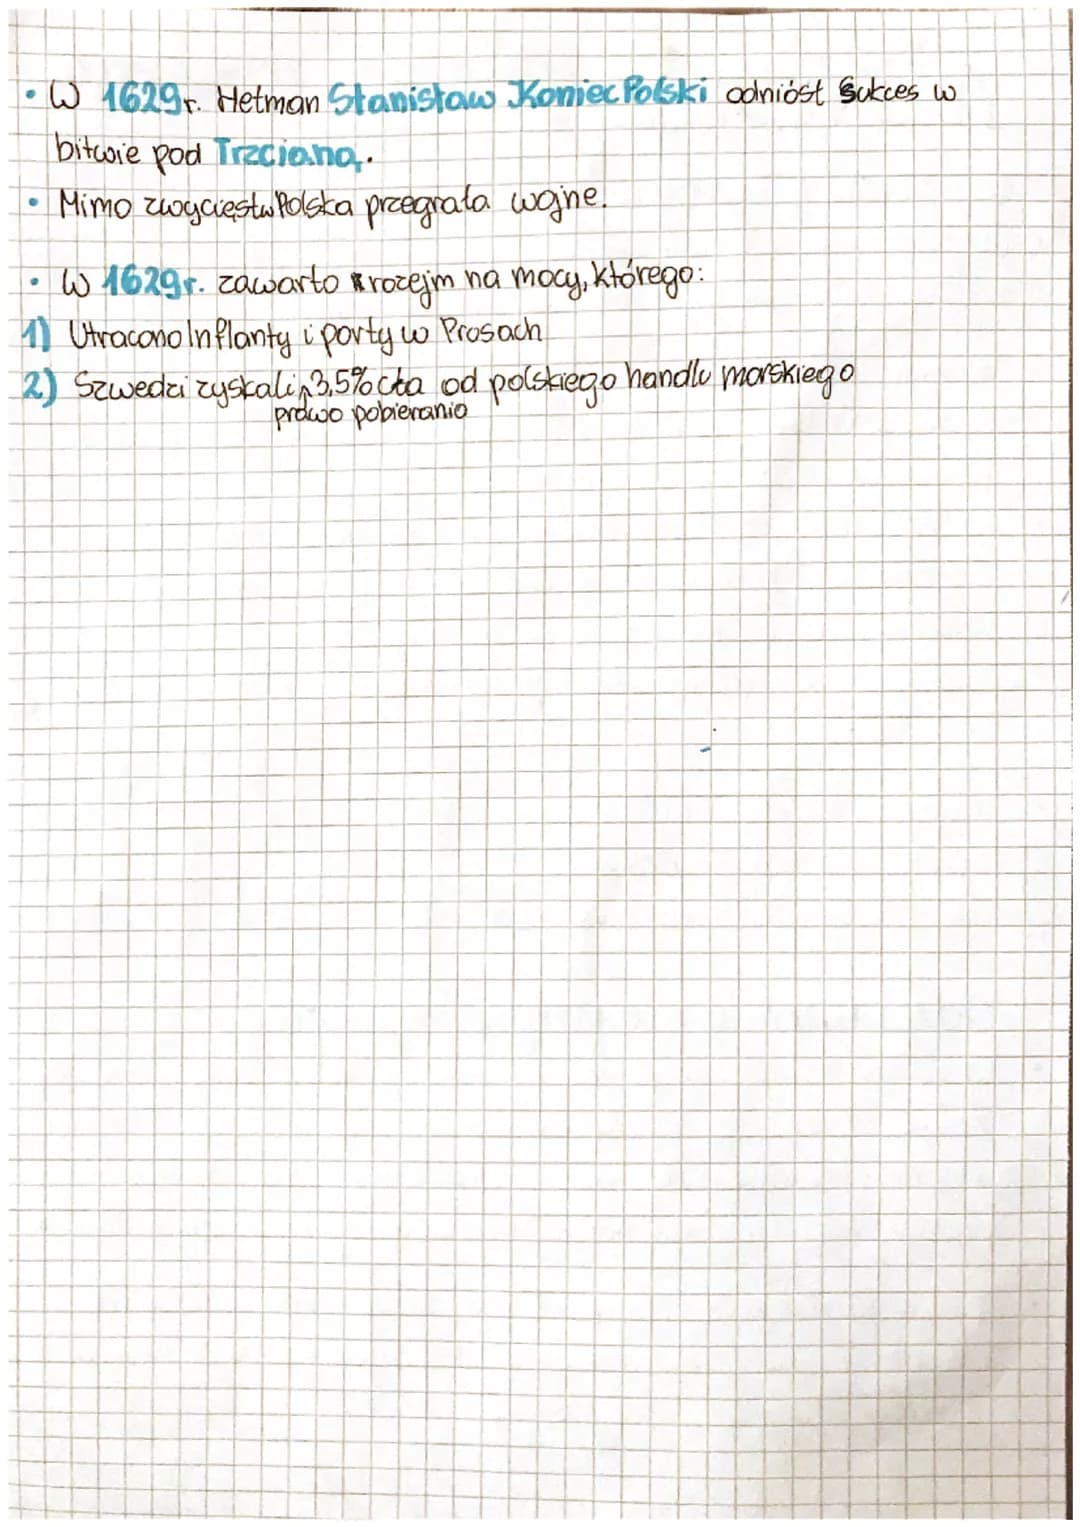 • W 1629r. Hetman Stanisław KoniecPolski odniósł sukces w
bitwie pod Trzcianą.
• Mimo zwycięstw Polska przegrała wojne.
• W 1629r. zawarto rozejm na mocy, którego:
1) Utracono Inflanty i porty w Prusach
2) Szwedzi zyskali 3,5% cła od polskiego handlu morskiego
prawo pobierania